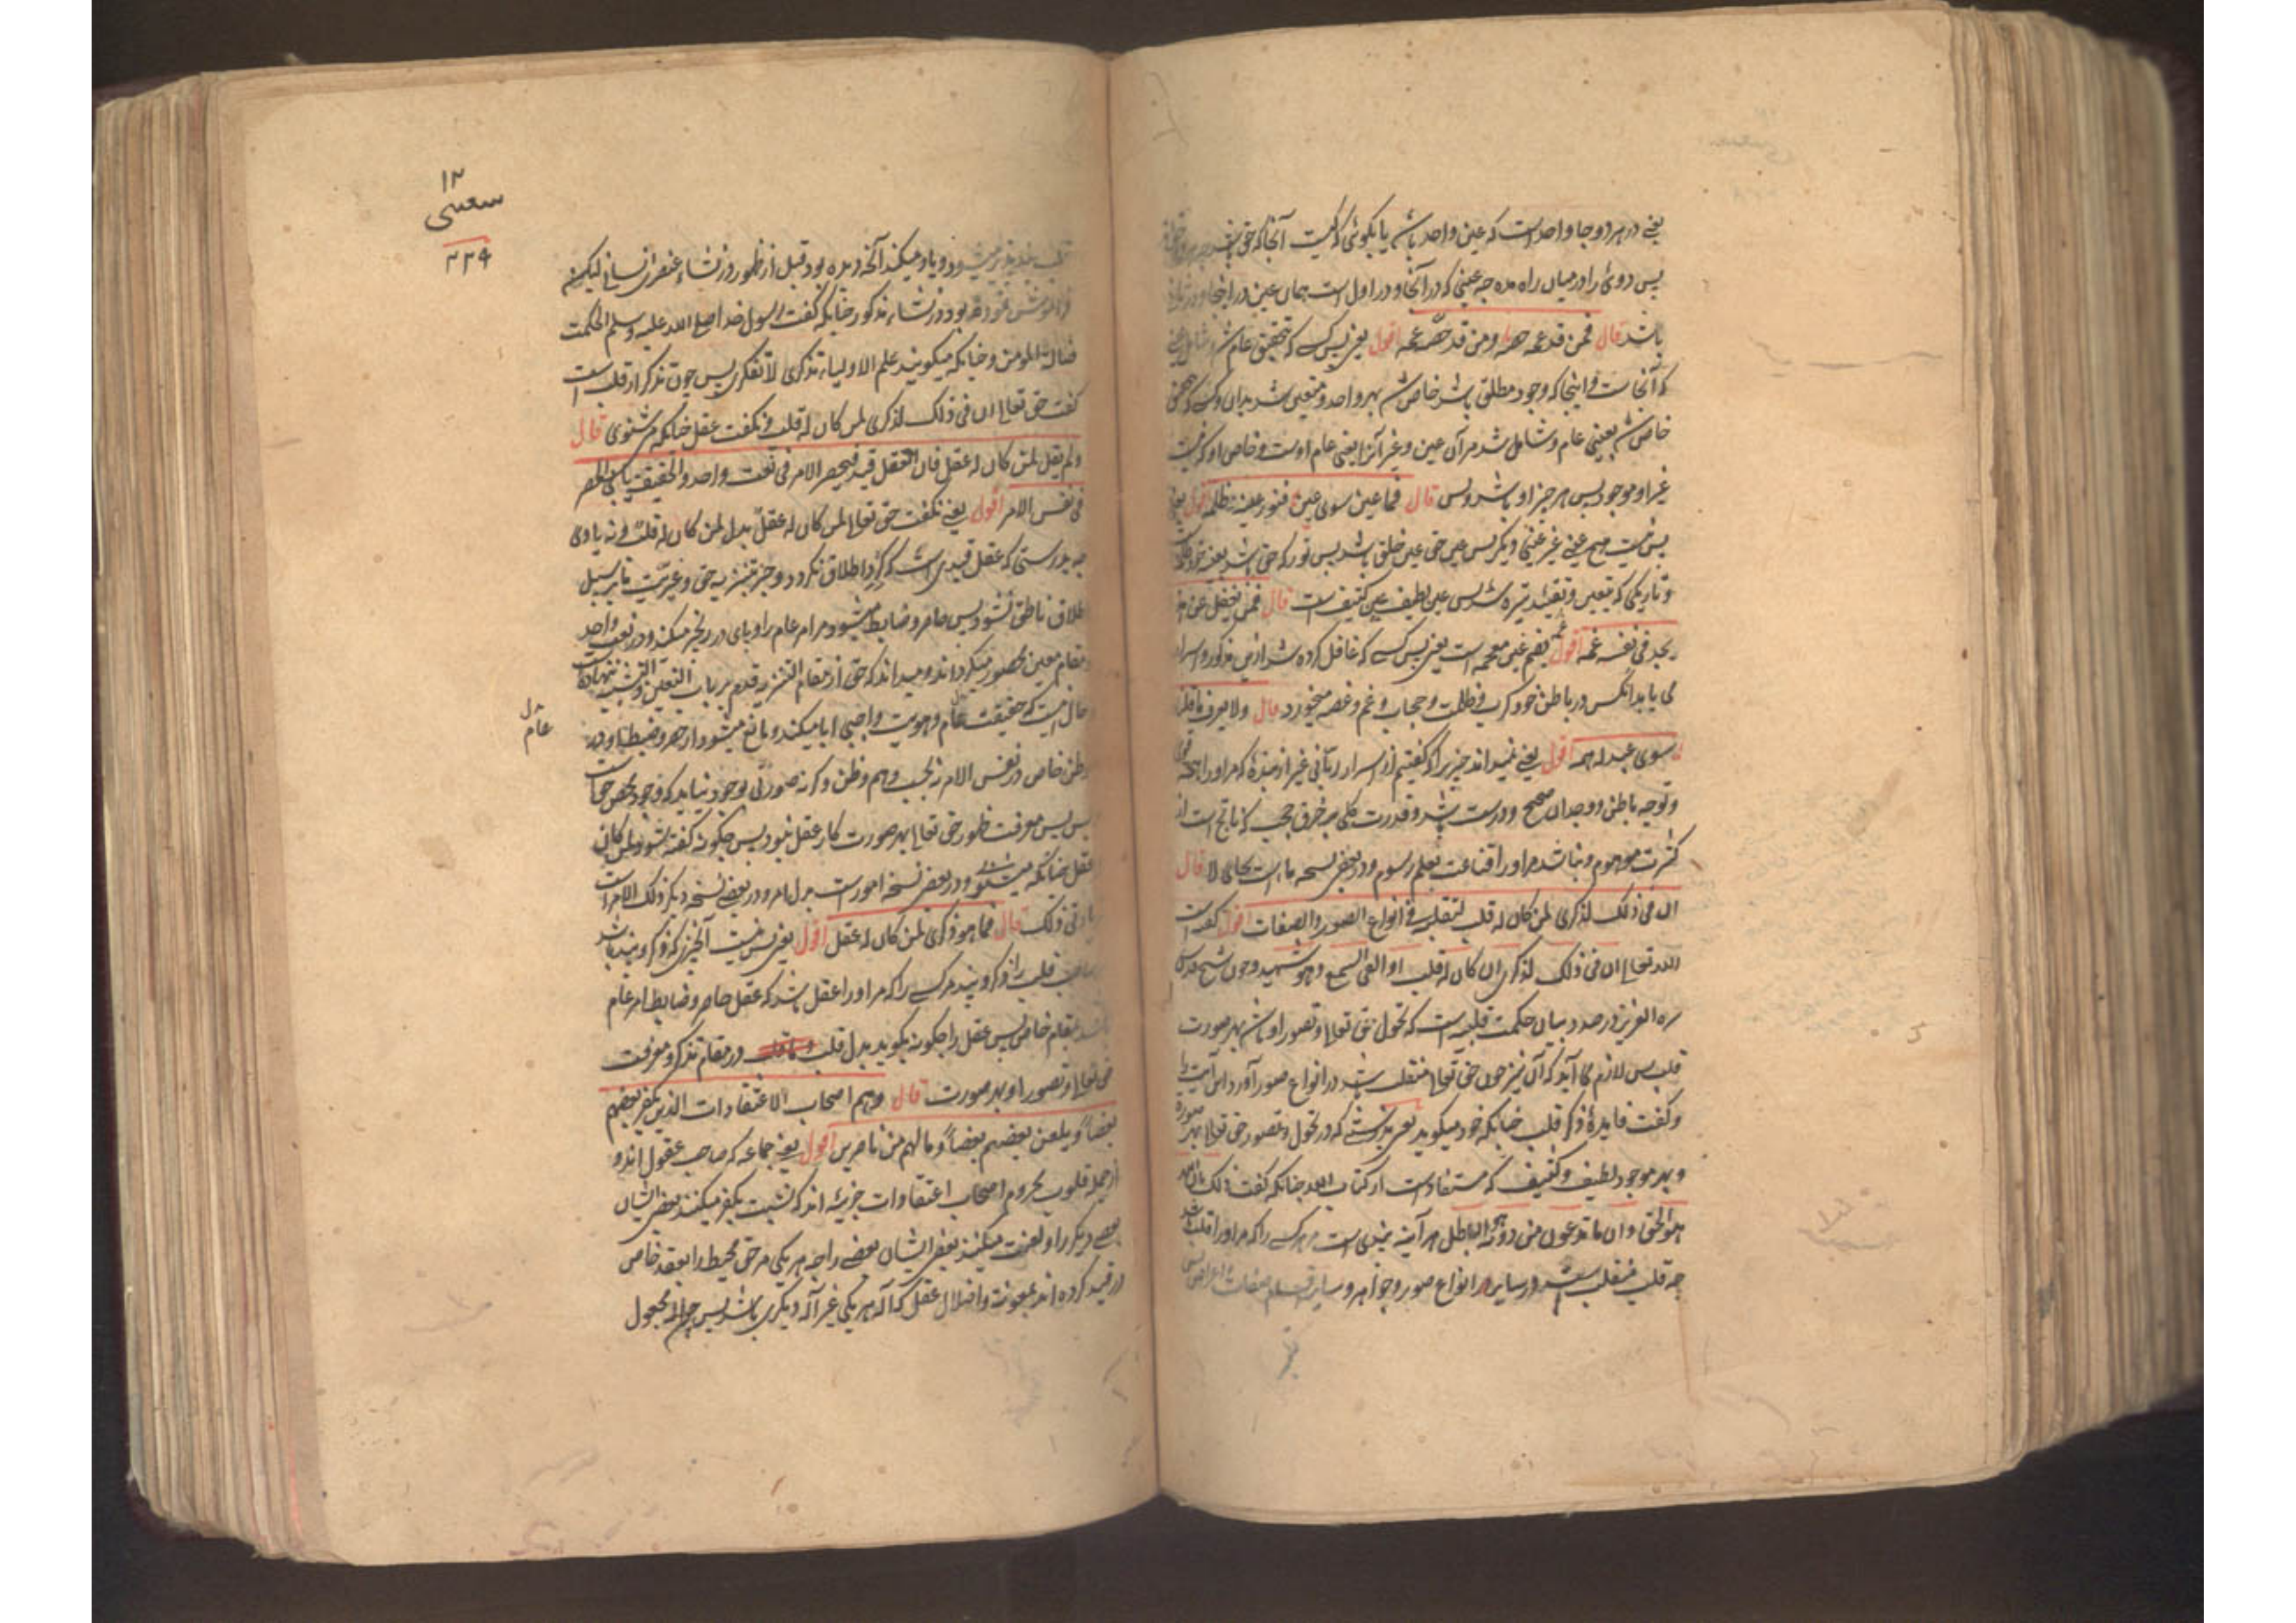 یعنے در هر دو جا واحد است که عین واحد باشد یا بگوئی که کیست آنجا که حق باشد
پس دوئی را در میان راه مده چه عینی که در آنجا و در اول است همان عین در اینجا و در
باشد قال فمن قد عمه خصه ومن قد خصه عمه اقول یعنی پس کسے که تحقیق عام شد
که آنجاست و اینجا که وجود مطلق باشد خاص شد بهر واحد و متعین شد بدان و کسے که
خاص شد یعنی عام و شامل شد مر آن عین و غیر آنرا یعنی عام اوست و خاص او که نیست
غیر او موجود پس هر چیز او باشد و بس قال فما عین سوی عین فنور عینه ظلمه اقول یعنی
پس نیست هیچ عینے غیر عینی دیگر پس عین حق عین خلق باشد پس نور که حق باشد بعینه
و تاریکی که بتعین و تقیید تیره شد پس عین لطیف عین کثیف است قال فمن یغفل عن هذا
یجد فی نفسه غمه اقول بفتح غین معجمه است یعنی پس کسے که غافل کرده شد ازین مذکور و اسرار
می یابد آنکس در باطن خود کرب و ظلمت و حجاب و غم و غصه میخورد قال ولا یعرف ما قلنا
سوی عبد له همه اقول یعنے نمیداند چیزیرا که گفتیم از اسرار ربانی غیر از بندۀ که مر او را همه
و توجه باطن و وجدان صحیح و درست باشد و قدرت کلی بر خرق حجب که ناتج است از
کثرت موهوم و نباشد مر او را قناعت بعلم رسوم و در بعضی نسخه ما است بجای لا قال
ان فی ذلک لذکری لمن کان له قلب لتقلبه فی انواع الصور والصفات اقول گفته است
الله تعالی ان فی ذلک لذکری لمن کان له قلب او القی السمع وهو شهید و چون شیخ قدس
سره العزیز در صدد بیان حکمت قلبیه است که تحول حق تعالی و تصور او باشد بهر صورت
قلب پس لازم می آید که آن نیز چون حق تعالی متقلب باشد در انواع صور آورد این آیت را
و گفت فایدۀ ذکر قلب چنانکه خود میگوید یعنی بدرستے که در تحول و تصور حق تعالی بهر صورة
و بهر موجود لطیف و کثیف که مستفاد است از کتاب الله چنانکه گفت ذلک بان الله
هو الحق وان ما تدعون من دونه الباطل هر آینه پندی است مر هر کسے را که مر او را قلب باشد
چه قلب متقلب است در سایر انواع صور و جواهر و سایر صفات اعراض
۱۲
سعیی
۲۳۹
قلب میشود و یاد میکند آنچه دیده بود قبل از ظهور در نشاء عنصر انسانی لیکن
فراموش نموده بود در نشاء مذکور چنانکه گفت رسول خدا صلی الله علیه وسلم الحکمت
ضالة المومن و چنانکه میگویند علم الاولیاء تذکری لا تفکری پس چون تذکر از قلب است
گفت حق تعالی ان فی ذلک لذکری لمن کان له قلب و نگفت عقل چنانکه می شنوی قال
ولم یقل لمن کان له عقل فان العقل قید فیحصر الامر فی نعت واحد والحقیقة تابی الحصر
فی نفس الامر اقول یعنے نگفت حق تعالی لمن کان له عقل بدل لمن کان له قلب
چه بدرستی که عقل قیدی است که گرد اطلاق نگردد و جز بتنزیه حق و غیریت
اطلاق ناطق نشود پس حاصر و ضابط میشود مر امر عام را و پای در زنجیر میکند و در نعت واحد
و مقام معین محصور میگرداند و میداند که حق از مقام التنزیه قدم بر باب التعین و التشبیه ننهاده
و حال آنست که حقیقت عام و هویت واجبی ابا میکند و مانع میشود از حصر و ضبط او در
بدل
عام
وطن خاص در نفس الامر نه بحسب وهم و ظن و گرنه صورتی بوجود نیاید که وجود محض حق است
پس پس معرفت ظهور حق تعالی بهر صورت کار عقل نبود پس چگونه گفته شود لمن کان
عقل چنانکه میشنوی و در بعضی نسخه امور است بدل امر و در بعضے نسخه دیگر ذلک الامر است
قال فما هو ذکری لمن کان له عقل اقول یعنی پس نیست آنچیزی که ذکر و پند باشد
صاحب قلب را ذکر و پند مر کسے را که مر او را عقل باشد که عقل حاصر و ضابط امر عام
باشد بمقام خاص پس عقل را چگونه بگوید بدل قلب در مقام تذکر و معرفت
حق تعالی و تصور او بهر صورت قال وهم اصحاب الاعتقادات الذین یکفر بعضهم
بعضا ویلعن بعضهم بعضا وما لهم من ناصرین اقول یعنے جماعه که صاحب عقول اند و
از جمله قلوب محروم اصحاب اعتقادات جزئیه اند که نسبت بکفر میکنند بعضی ایشان
بعضے دیگر را و لعنت میکنند بعضی ایشان بعضے را چه هر یکی مر حق محیط را بعقد خاص
در قید کرده اند بمعونت و اضلال عقل که آله هر یکی غیر آله دیگری باشد پس چون اله مجعول